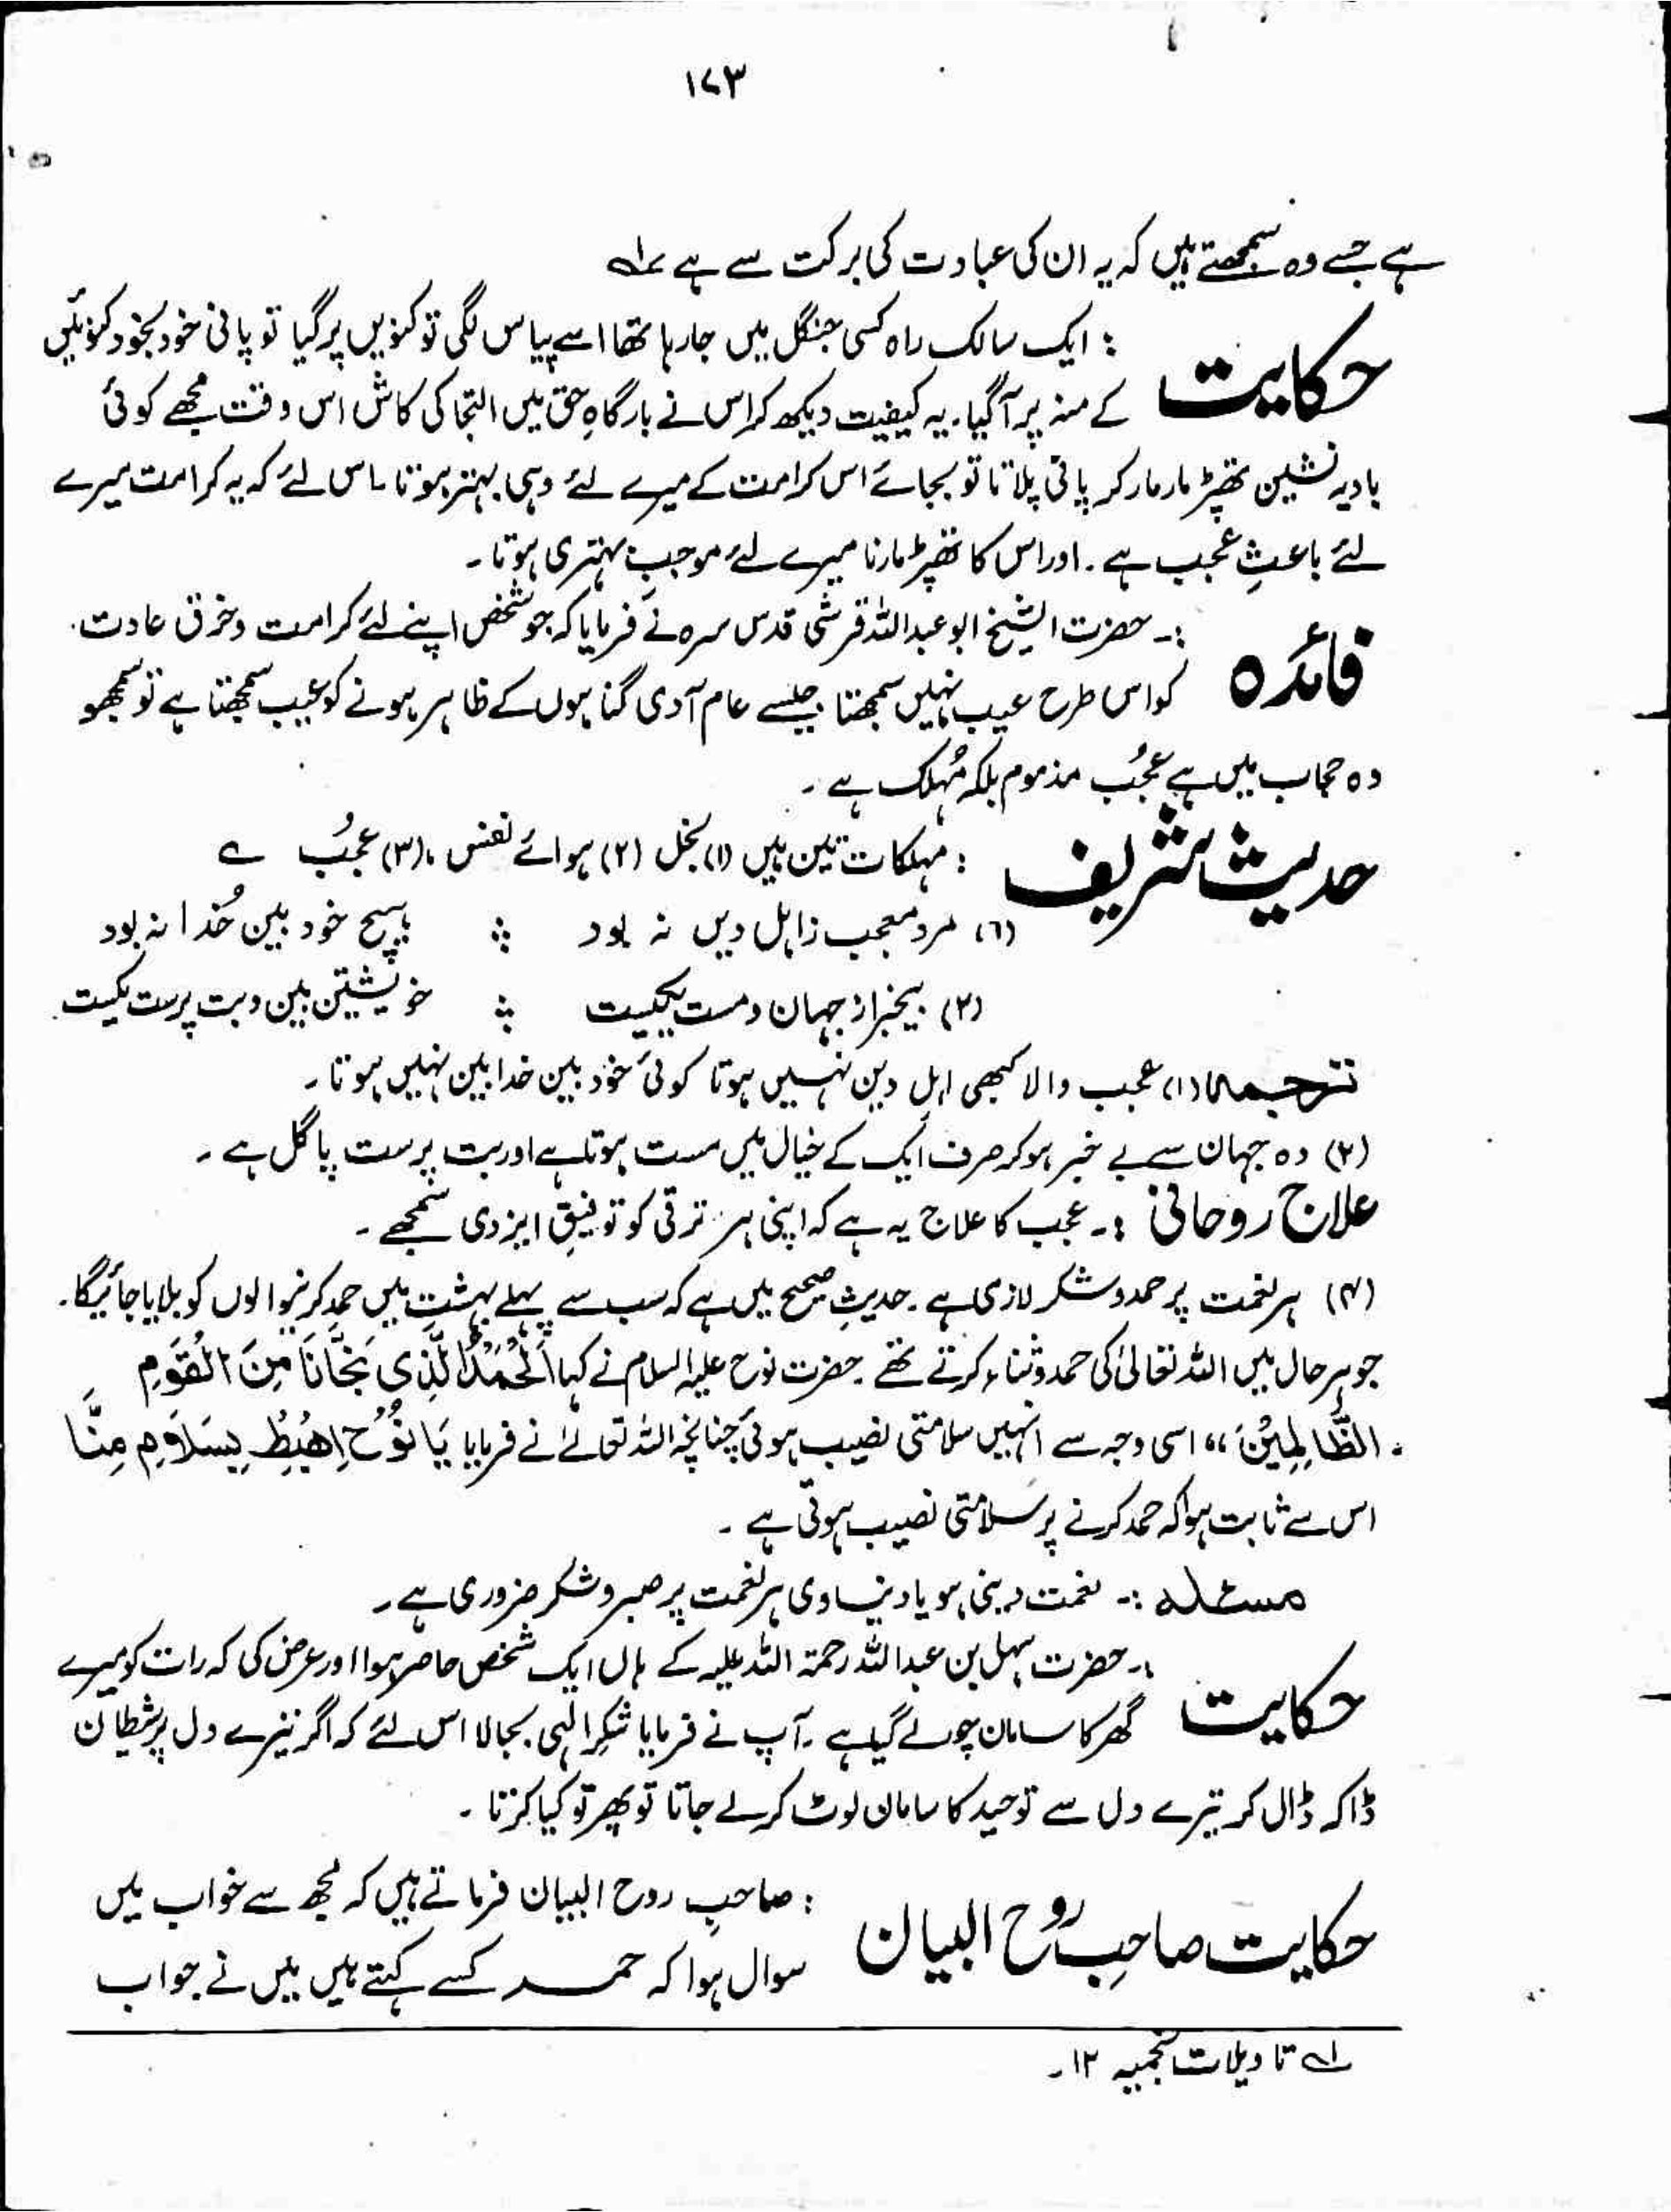 ۱۷۳
ہے جسے وہ سمجھتے ہیں کہ یہ ان کی عبادت کی برکت سے ہے ۱؎
حکایت : ایک سالک راہ کسی جنگل میں جا رہا تھا اسے پیاس لگی تو کنویں پر گیا تو پانی خود بخود کنوئیں
کے منہ پر آگیا۔ یہ کیفیت دیکھ کر اس نے بارگاہِ حق میں التجا کی کاش اس وقت مجھے کوئی
بادیہ نشین تھپڑ مار مار کر پانی پلاتا تو بجائے اس کرامت کے میرے لئے وہی بہتر ہوتا۔ اس لئے کہ یہ کرامت میرے
لئے باعثِ عجب ہے۔ اور اس کا تھپڑ مارنا میرے لئے موجبِ بہتری ہوتا۔
فائدہ :۔ حضرت الشیخ ابو عبداللہ قرشی قدس سرہ نے فرمایا کہ جو شخص اپنے لئے کرامت و خرق عادت
کو اس طرح عیب نہیں سمجھتا جیسے عام آدمی گناہوں کے ظاہر ہونے کو عیب سمجھتا ہے تو سمجھو
وہ حجاب میں ہے عُجُب مذموم بلکہ مُہلک ہے۔
حدیث شریف : مہلکات تین ہیں (۱) بخل (۲) ہوائے نفس ۔ (۳) عجُب ے
(۱) مرد معجب زاہل دیں نہ بود ؞ ہیچ خود بین خُدا نہ بود
(۲) بیخبر از جہان دمست یکیست ؞ خویشتن بین و بت پرست یکیست
ترجمہ (۱) عجب والا کبھی اہلِ دین نہیں ہوتا کوئی خود بین خدا بین نہیں ہوتا۔
(۲) وہ جہان سے بے خبر ہو کر صرف ایک کے خیال میں مست ہوتا ہے اور بت پرست پاگل ہے۔
علاج روحانی :۔ عجب کا علاج یہ ہے کہ اپنی ہر ترقی کو توفیقِ ایزدی سمجھے۔
(۴) ہر نعمت پر حمد و شکر لازمی ہے۔ حدیثِ صحیح میں ہے کہ سب سے پہلے بہشت میں حمد کرنیوالوں کو بلایا جائیگا۔
جو ہر حال میں اللہ تعالیٰ کی حمد و ثناء کرتے تھے۔ حضرت نوح علیہ السلام نے کہا اَلْحَمْدُ لِلّٰہِ الَّذِی نَجَّانَا مِنَ الْقَوْمِ
الظَّالِمِیْنَ ،، اسی وجہ سے انہیں سلامتی نصیب ہوئی چنانچہ اللہ تعالےٰ نے فرمایا یَا نُوْحُ اھْبِطْ بِسَلَامٍ مِنَّا
اس سے ثابت ہوا کہ حمد کرنے پر سلامتی نصیب ہوتی ہے۔
مسئلہ :۔ نعمت دینی ہو یا دنیاوی ہر نعمت پر صبر و شکر ضروری ہے۔
حکایت :۔ حضرت سہل بن عبداللہ رحمۃ اللہ علیہ کے ہاں ایک شخص حاضر ہوا اور عرض کی کہ رات کو میرے
گھر کا سامان چور لے گیا ہے۔ آپ نے فرمایا شکرِ الٰہی بجالا اس لئے کہ اگر تیرے دل پر شیطان
ڈاکہ ڈال کر تیرے دل سے توحید کا سامان لوٹ کر لے جاتا تو پھر تو کیا کرتا۔
حکایت صاحبِ روح البیان : صاحبِ روح البیان فرماتے ہیں کہ مجھ سے خواب میں
سوال ہوا کہ حمد کسے کہتے ہیں میں نے جواب
۱؎ تاویلات نجمیہ ۱۲۔